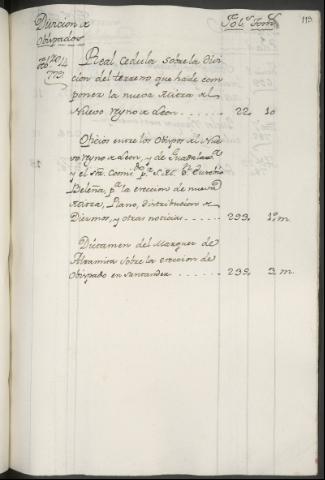 Divicion de
Obispados
Fols. Toms.
113
Real Cedula sobre la divi
cion del terreno que hade com
poner la nueva Mitra del
Nuevo Reyno de Leon . . . . . . 22, 10
Oficios entre los Obispos del Nue
vo Reyno de Leon, y de Guadalaxa.ª
y el Sr. Comi.º
Beleña, p.ª la ereccion de nueva
Mitra, Plano, distribucion de
Diezmos, y otras noticias . . 293, 1º m.
Dictamen del Marquez de
Altamira sobre la ereccion de
Obispado en Santander . . . . . . 235, 3 m.